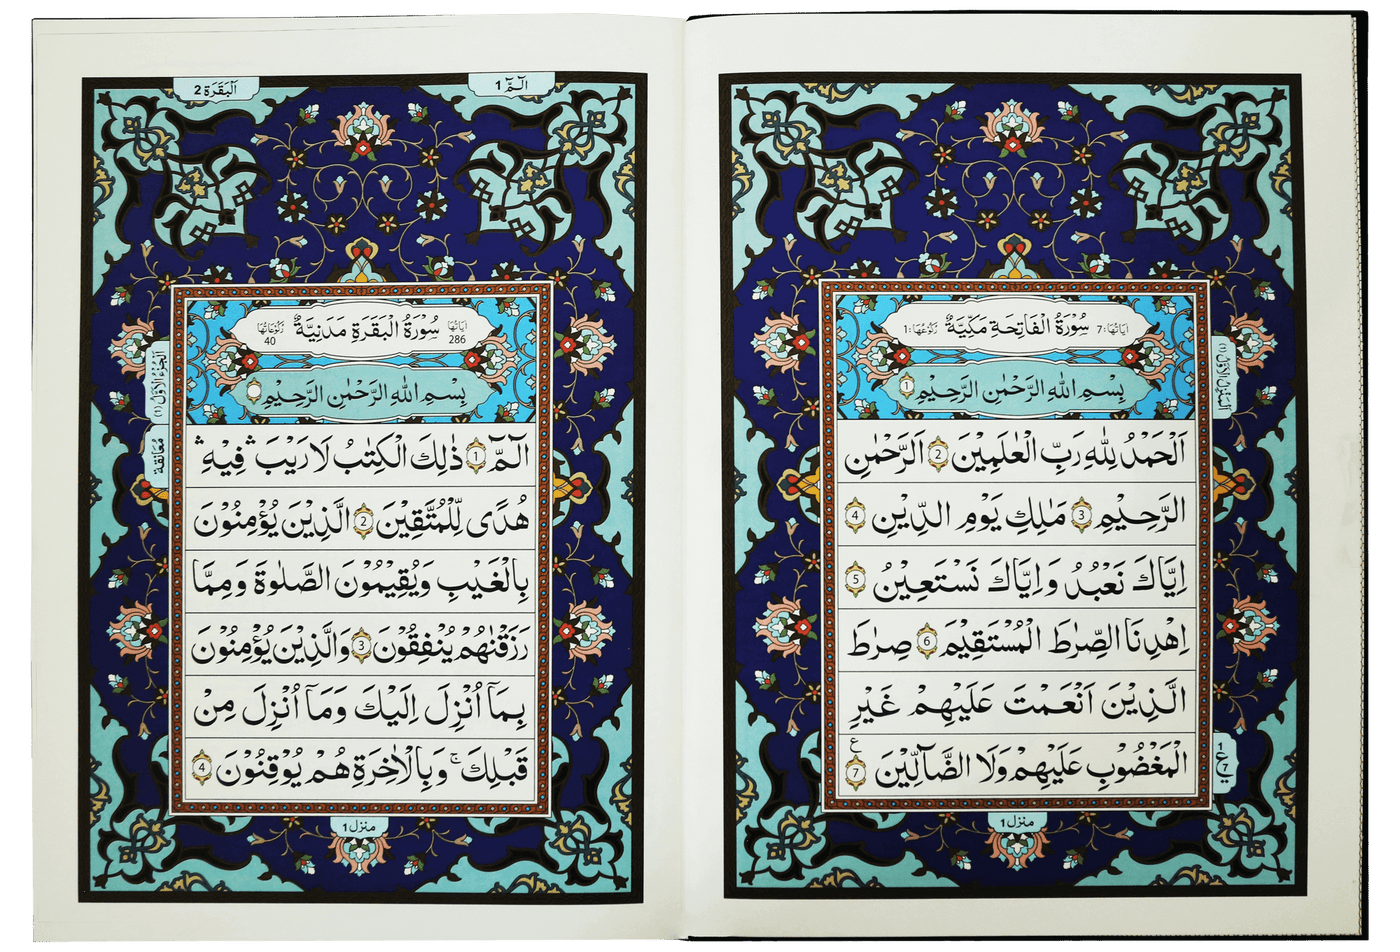 سُوْرَةُ الْفَاتِحَةِ مَكِّيَّةٌ
اٰيَاتُهَا: 7
رُكُوْعُهَا: 1
بِسْمِ اللّٰهِ الرَّحْمٰنِ الرَّحِيْمِ 1
اَلْحَمْدُ لِلّٰهِ رَبِّ الْعٰلَمِيْنَ 2 اَلرَّحْمٰنِ
الرَّحِيْمِ 3 مٰلِكِ يَوْمِ الدِّيْنِ 4
اِيَّاكَ نَعْبُدُ وَاِيَّاكَ نَسْتَعِيْنُ 5
اِهْدِنَا الصِّرٰطَ الْمُسْتَقِيْمَ 6 صِرٰطَ
الَّذِيْنَ اَنْعَمْتَ عَلَيْهِمْ غَيْرِ
الْمَغْضُوْبِ عَلَيْهِمْ وَلَا الضَّآلِّيْنَ 7
ع
1
ع
7
منزل 1
اَلْبَقَرَة 2
الٓمّٓ 1
سُوْرَةُ الْبَقَرَةِ مَدَنِيَّةٌ
اٰيَاتُهَا 286
رُكُوْعَاتُهَا 40
بِسْمِ اللّٰهِ الرَّحْمٰنِ الرَّحِيْمِ
الٓمّٓ 1 ذٰلِكَ الْكِتٰبُ لَا رَيْبَ ۛ فِيْهِ ۛ
هُدًى لِّلْمُتَّقِيْنَ 2 الَّذِيْنَ يُؤْمِنُوْنَ
بِالْغَيْبِ وَيُقِيْمُوْنَ الصَّلٰوةَ وَمِمَّا
رَزَقْنٰهُمْ يُنْفِقُوْنَ 3 وَالَّذِيْنَ يُؤْمِنُوْنَ
بِمَآ اُنْزِلَ اِلَيْكَ وَمَآ اُنْزِلَ مِنْ
قَبْلِكَ ۚ وَبِالْاٰخِرَةِ هُمْ يُوْقِنُوْنَ 4
اَلْجُزْءُ الْاَوَّل (1)
معانقة
منزل 1